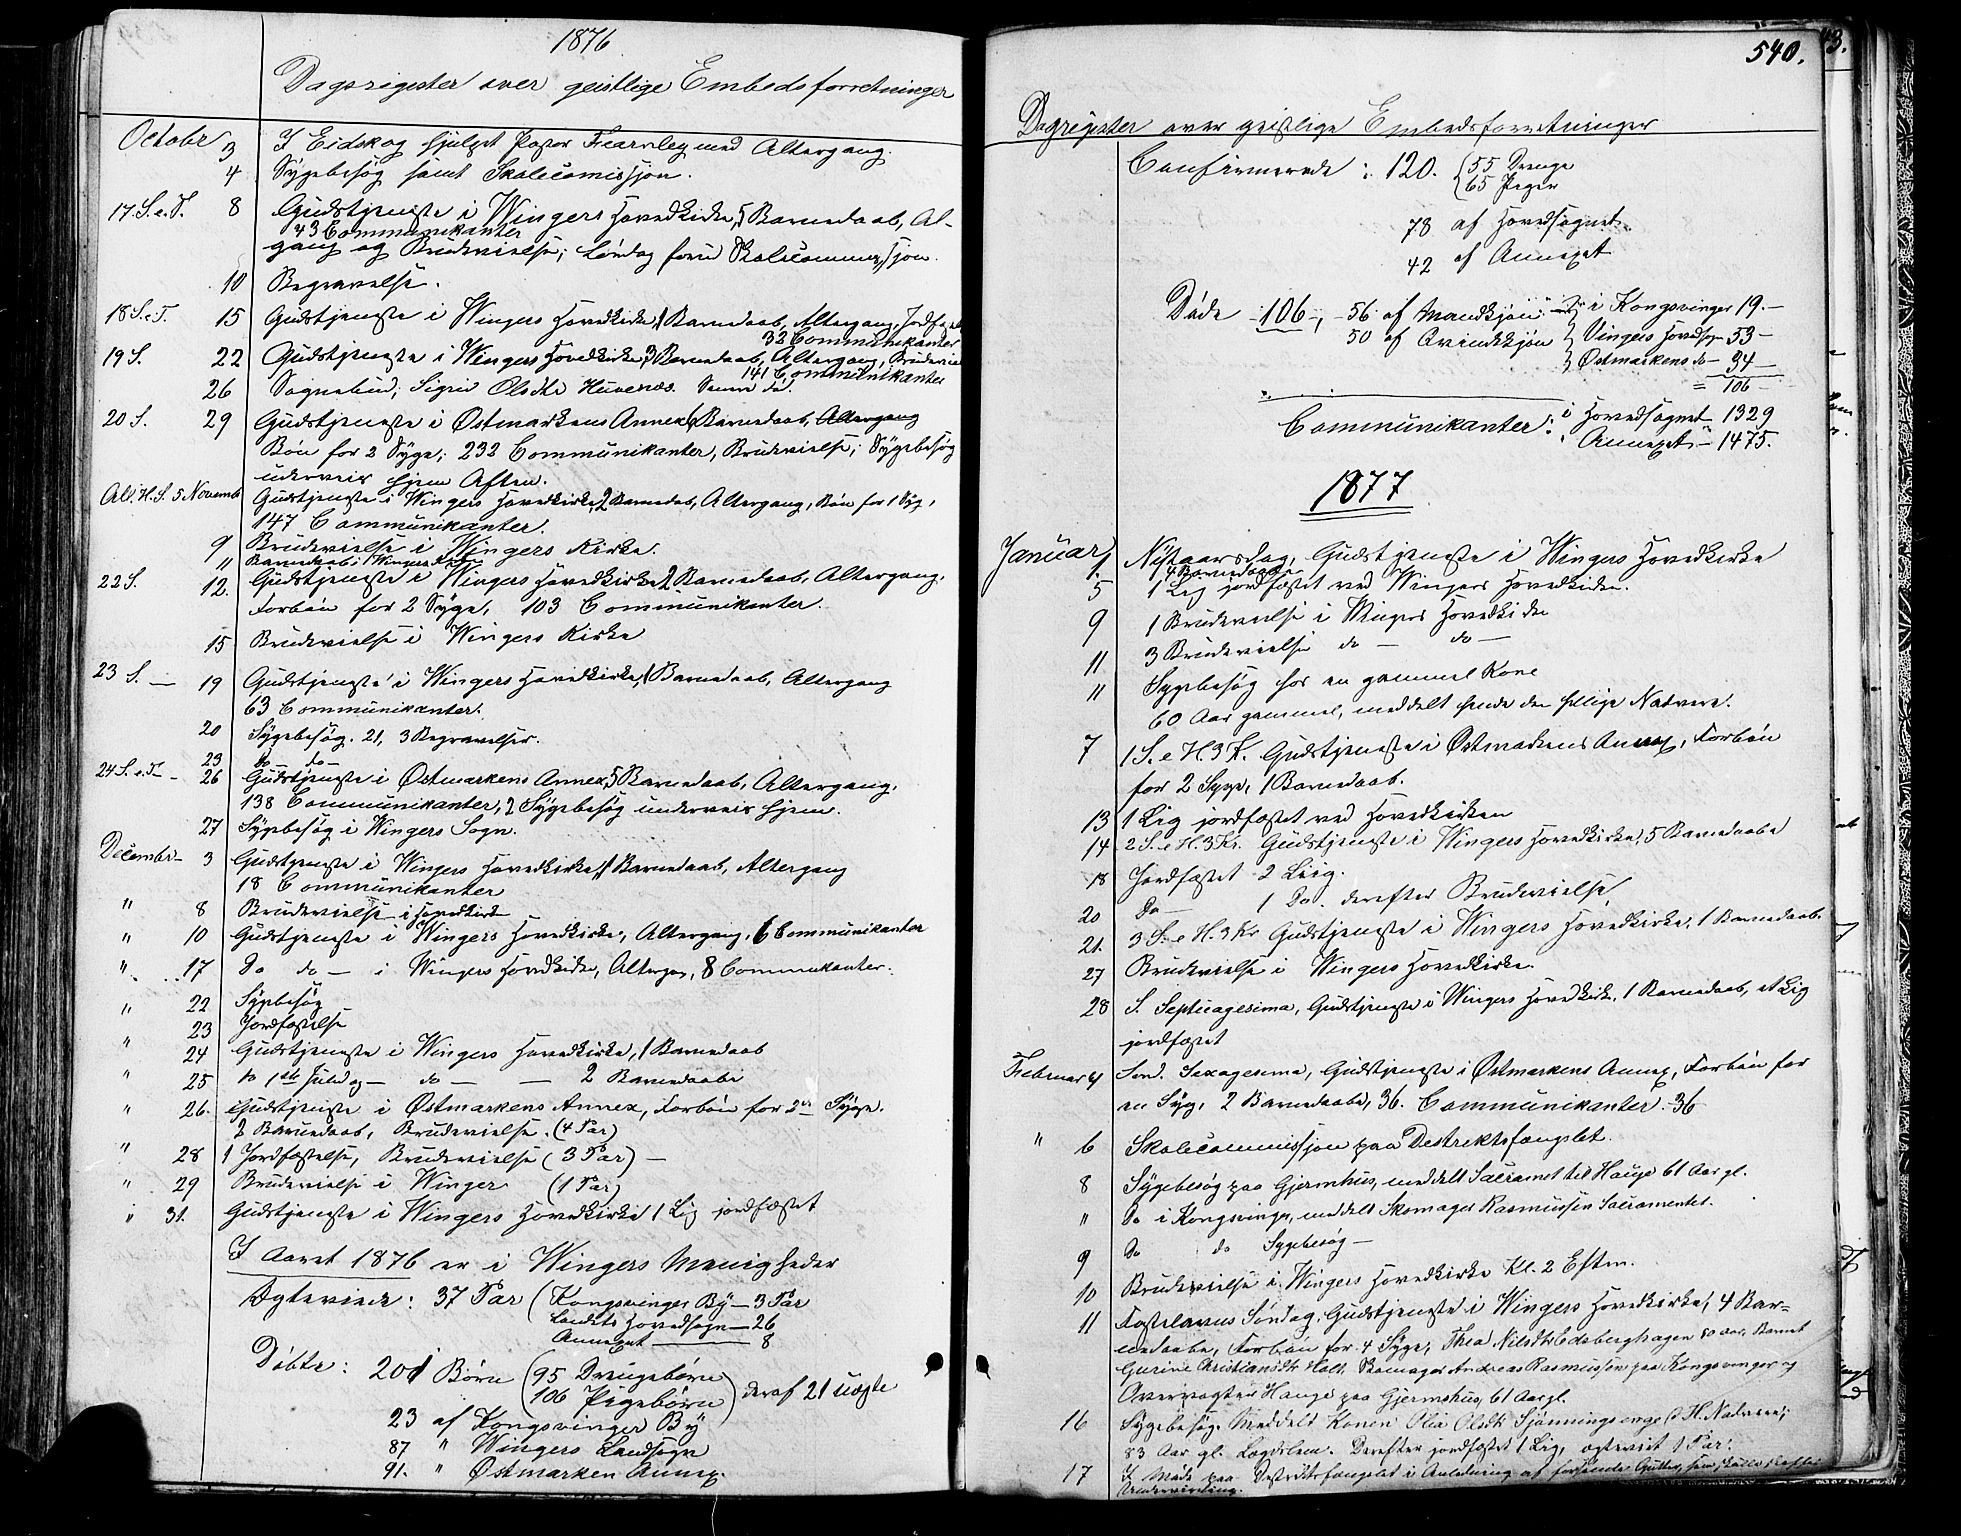 1876
Dagsregister over geistlige Embedsforretninger
Octobr 3 I Eidskog hjulpet Pastor Fearnley med Altergang.
4 Sygebesøg samt Skolecomissjon.
17 S. e. T. 8 Gudstjeneste i Wingers Hovedkirke, 5 Barnedaab, Al-
43 Communikanter
gang og Brudevielse; Lørdag forud Skolecommissjon.
10 Begravelse.
18 S. e. T. 15 Gudstjeneste i Wingers Hovedkirke, 1 Barnedaab, Altergang, Jordfæstelse
32 Communikanter
19 S. 22 Gudstjeneste i Wingers Hovedkirke, 3 Barnedaab, Altergang, Brudevielse
141 Communikanter
26 Sognebud; Sigrid Olsdtr
20 S. 29 Gudstjeneste i Østmarkens Annex, Barnedaab, Altergang
Bøn for 2 Syge; 232 Communikanter, Brudevielse; Sygebesøg
underveis hjem Aften.
Al. H. S. 5 Novemb Gudstjeneste i Wingers Hovedkirke, 2 Barnedab, Altergang, Bøn for 1 Syg,
147 Communikanter.
9 Brudevielse i Wingers Kirke.
" Barnedaab i Wingers
22 S. 12. Gudstjeneste i Wingers Hovedkirke, 2 Barnedaab, Altergang,
Forbøn for 2 Syge, 103 Communikanter.
15 Brudevielse i Wingers Kirke
23 S. — 19 Gudstjeneste i Wingers Hovedkirke, 1 Barnedaab, Altergang
63 Communikanter.
20 Sygebesøg. 21, 3 Begravelser.
23 do do —
24 S. e. T — 26 Gudstjeneste i Østmarkens Annex, 5 Barnedaab, Altergang,
138 Communikanter, 2 Sygebesøg underveis hjem.
27 Sygebesøg i Wingers Sogn.
Decembr — 3 Gudstjeneste i Wingers Hovedkirke, 1 Barnedaab, Altergang
18 Communikanter
" 8 Brudevielse i Hovedkirke
" 10 Gudstjeneste i Wingers Hovedkirke, Altergang, 6 Communikanter
" 17 Do do — i Wingers Hovedkirke, Altergang, 8 Communikanter.
" 22 Sygebesøg
23 Jordfæstelse
" 24 Gudstjeneste i Wingers Hovedkirke, 1 Barnedaab
" 25 do 1ste Juledag — do — — 2 Barnedaabe
" 26. Gudstjeneste i Østmarkens Annex, Forbøn for 2de Syge.
2 Barnedaab, Brudevielse. (4 Par)
" 28 1 Jordfæstelse, Brudevielse (3 Par) —
" 29 Brudevielse i Winger (1 Par)
" 31. Gudstjeneste i Wingers Hovedkirke 1 Lig jordfæstet
I Aaret 1876 er i Wingers Menigheder
Ægteviede: 37 Par (Kongsvinger By — 3 Par
Landets Hovedsogn — 26
Annexet — 8
Døbte: 201 Børn (95 Drengebørn
106 Pigebørn) deraf 21 uægte
23 af Kongsvinger By
87 " Wingers Landsogn
91. " Østmarken Annex.
540.
Dagregister over geistlige Embedsforretninger
Confirmerede: 120. {55 Drenge
{65 Piger
78 af Hovedsognet
42 af Annexet
Døde 106, — 56 af Mandkjøn i Kongsvinger 19. —
50 af Qvindekjøn } Vingers Hovedsogn 53 —
} Østmarkens do — 34 —
= 106 —
Communikanter: i Hovedsognet 1329
Annexet — 1475.
1877
Januar 1. Nytaarsdag, Gudstjeneste i Wingers Hovedkirke
4 Barnedaabe
5 1 Lig jordfæstet ved Wingers Hovedkirke.
9 1 Brudevielse i Wingers Hovedkirke
11 3 Brudevielse do — do —
11 Sygebesøg hos en gammel Kone
60 Aar gammel, meddelt hende den hellige Nadvere.
7 1 S. e H. 3 K. Gudstjeneste i Østmarkens Annex, Forbøn
for 2 Syge, 1 Barnedaab.
13 1 Lig jordfæstet ved Hovedkirken
14 2 S. e H. 3 Kr. Gudstjeneste i Wingers Hovedkirke, 5 Barnedaabe
18 Jordfæstet 2 Liig.
20 Do — 1 Do. derefter Brudevielse,
21. 3 S. e H. 3 Kr Gudstjeneste i Wingers Hovedkirke, 1 Barnedaab.
27 Brudevielse i Wingers Hovedkirke.
28 S. Septuagesima, Gudstjeneste i Wingers Hovedkirke, 1 Barnedaab, et Lig
jordfæstet
Februar 4 Sønd. Sexagesima, Gudstjeneste i Østmarkens Annex, Forbøn for
en Syg, 2 Barnedaabe, 36. Communikanter. 36
" 6 Skolecommissjon paa Destriktsfængslet.
8 Sygebesøg paa Gjermshus, meddelt Sacramet til Hauge 61 Aar gl.
" Do i Kongsvinger, meddelt Skomager Rasmussen Sacramentet.
9 Do do Sygebesøg —
10 Brudevielse i Wingers Hovedkirke Kl. 2 Efterm.
11 Fastelavns Søndag, Gudstjeneste i Wingers Hovedkirke, 4 Bar=
nedaabe, Forbøn for 4 Syge, Thea Nilsdtr Edsberghagen 80 aar, Barnet
Gurine Christiansdtr Holt, Skomager Andreas Rasmussen paa Kongsvinger og
Overvogter Hauge paa Gjermshus, 61 Aar gl.
16 Sygebesøg. Meddelt Konen Olia Olsdtr H. Nadvere;
83 Aar gl. Lægdslem. Derefter jordfæstet 1 Lig, ægteviet 1 Par.
17 I Møde paa Destriktsfængslet i Anledning af
Undervisning.